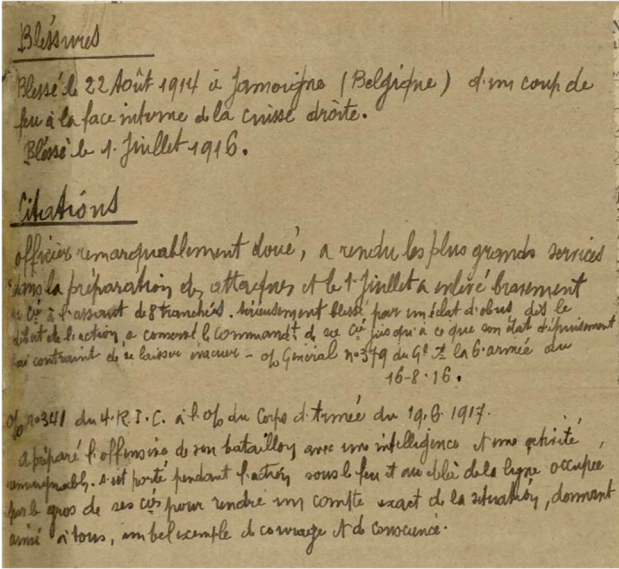 Bléssures
Blessé le 22 Août 1914 à Jamoigne (Belgique) d'un coup de
feu à la face interne de la cuisse droite.
Bléssé le 1 Juillet 1916.
Citations
officier remarquablement doué, a rendu les plus grands services
dans la préparation des attaques et le 1 Juillet a enlevé bravement
sa Cie à l'assaut de 8 tranchées. Sérieusement blessé par un éclat d'obus dès le
début de l'action, a conservé le commandt de sa Cie jusqu'à ce que son état d'épuisement
l'ai contraint de se laisser évacuer - o/ Général n° 379 du Gl Ct la 6e armée du
16-8-16.
o/ n° 341 du 4. R. I. C. à l'o/ du Corps d'Armée du 19.6.1917.
a préparé l'offensive de son bataillon avec une intelligence et une activité
remarquables. s'est porté pendant l'action sous le feu et au delà de la ligne occupée
par le gros de ses cies pour rendre un compte exact de la situation, donnant
ainsi à tous, un bel exemple de courage et de conscience.